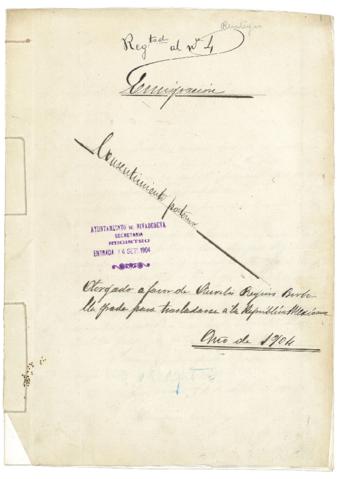 Reg.tado al nº 4
Emigración
Consentimiento paterno
AYUNTAMIENTO DE RIVADEDEVA
SECRETARIA
REGISTRO
ENTRADA 14 SET. 1904
Otorgado a favor de
para trasladarse a la República Mexicana
Año de 1904